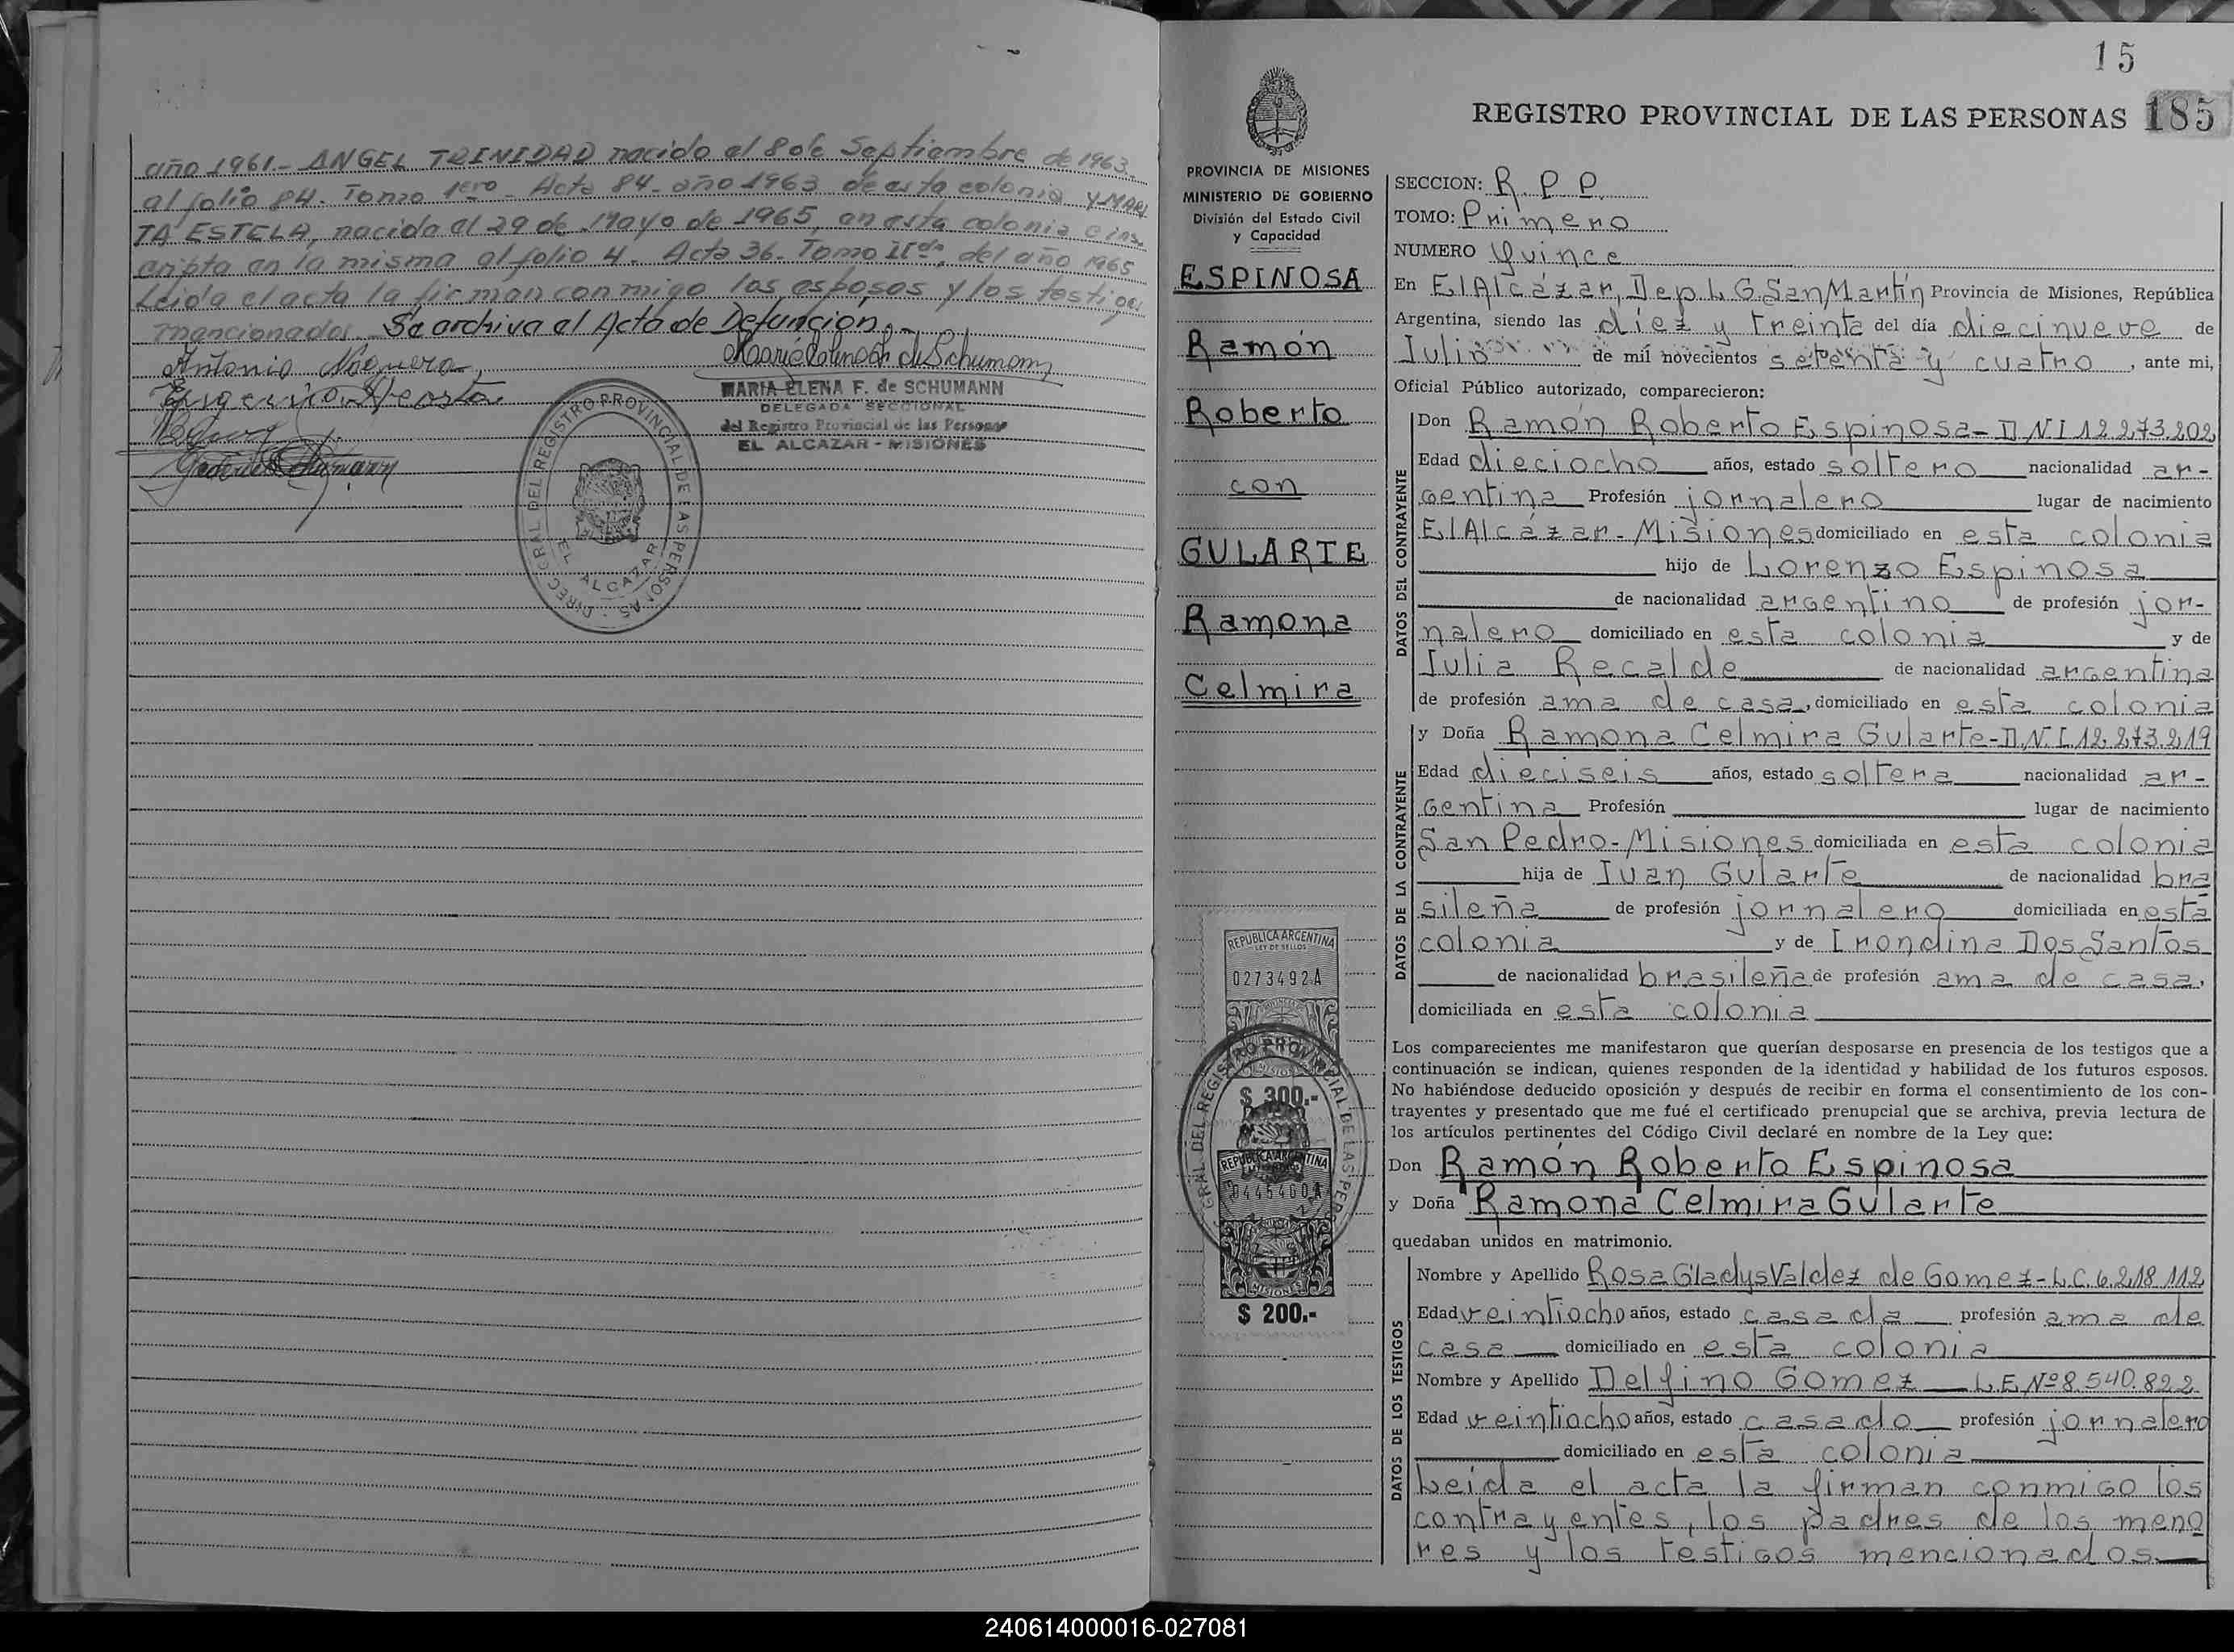 año 1961.- ANGEL TRINIDAD nacido el 8 de Septiembre de 1963.-
al folio 84. Tomo 1ero - Acta 84 - año 1963 de esta colonia y MAR
TA ESTELA, nacida el 29 de Mayo de 1965, en esta colonia e ins-
cripta en la misma al folio 4. Acta 36. Tomo IIdo, del año 1965
Leida el acta la firman conmigo los esposos y los testigos
mencionados. Se archiva el Acta de Defuncion.-
Antonio
MARIA ELENA F. de SCHUMANN
DELEGADA SECCIONAL
del Registro Provincial de las Personas
EL ALCAZAR - MISIONES
DIREC. GRAL DEL REGISTRO PROVINCIAL DE LAS PERSONAS
EL ALCAZAR
15
REGISTRO PROVINCIAL DE LAS PERSONAS 185
PROVINCIA DE MISIONES
MINISTERIO DE GOBIERNO
División del Estado Civil
y Capacidad
ESPINOSA
Ramón
Roberto
con
GULARTE
Ramona
Celmira
REPUBLICA ARGENTINA
LEY DE SELLOS
0273492A
$ 300.-
REPUBLICA ARGENTINA
0445460A
MISIONES
$ 200.-
GRAL DEL REGISTRO PROVINCIAL DE LAS PER
SECCION: R. P. P.
TOMO: Primero
NUMERO Quince
En El Alcázar, Dep. L. G. San Martín Provincia de Misiones, República
Argentina, siendo las diez y treinta del día diecinueve de
Julio de mil novecientos setenta y cuatro, ante mi,
Oficial Público autorizado, comparecieron:
DATOS DEL CONTRAYENTE
Don Ramón Roberto Espinosa - D N I 12.273.202
Edad dieciocho años, estado soltero nacionalidad ar-
gentina Profesión jornalero lugar de nacimiento
El Alcázar - Misiones domiciliado en esta colonia
hijo de Lorenzo Espinosa
de nacionalidad argentino de profesión jor-
nalero domiciliado en esta colonia y de
Julia Recalde de nacionalidad argentina
de profesión ama de casa, domiciliado en esta colonia
DATOS DE LA CONTRAYENTE
y Doña Ramona Celmira Gularte - D.N.I. 12.273.219
Edad dieciseis años, estado soltera nacionalidad ar-
gentina Profesión lugar de nacimiento
San Pedro - Misiones domiciliada en esta colonia
hija de Juan Gularte de nacionalidad bra
sileña de profesión jornalero domiciliada en esta
colonia y de Irondina Dos Santos
de nacionalidad brasileña de profesión ama de casa,
domiciliada en esta colonia
Los comparecientes me manifestaron que querían desposarse en presencia de los testigos que a
continuación se indican, quienes responden de la identidad y habilidad de los futuros esposos.
No habiéndose deducido oposición y después de recibir en forma el consentimiento de los con-
trayentes y presentado que me fué el certificado prenupcial que se archiva, previa lectura de
los artículos pertinentes del Código Civil declaré en nombre de la Ley que:
Don Ramón Roberto Espinosa
y Doña Ramona Celmira Gularte
quedaban unidos en matrimonio.
DATOS DE LOS TESTIGOS
Nombre y Apellido Rosa Gladys Valdez de Gomez - L.C. 6.218.112
Edad veintiocho años, estado casada profesión ama de
casa domiciliado en esta colonia
Nombre y Apellido Delfino Gomez L.E. Nº 8.540.822
Edad veintiocho años, estado casado profesión jornalero
domiciliado en esta colonia
Leida el acta la firman conmigo los
contrayentes, los padres de los meno
res y los testigos mencionados
240614000016-027081